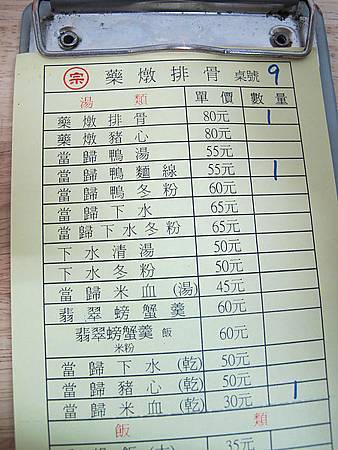 宗 藥燉排骨 桌號 9
湯類 單價 數量
藥燉排骨 80元 1
藥燉豬心 80元
當歸鴨湯 55元
當歸鴨麵線 55元 1
當歸鴨冬粉 60元
當歸下水 65元
當歸下水冬粉 65元
下水清湯 50元
下水冬粉 50元
當歸米血(湯) 45元
翡翠螃蟹羹 60元
翡翠螃蟹羹 飯 60元
米粉
當歸下水(乾) 50元
當歸豬心(乾) 50元 1
當歸米血(乾) 30元
飯類
35元